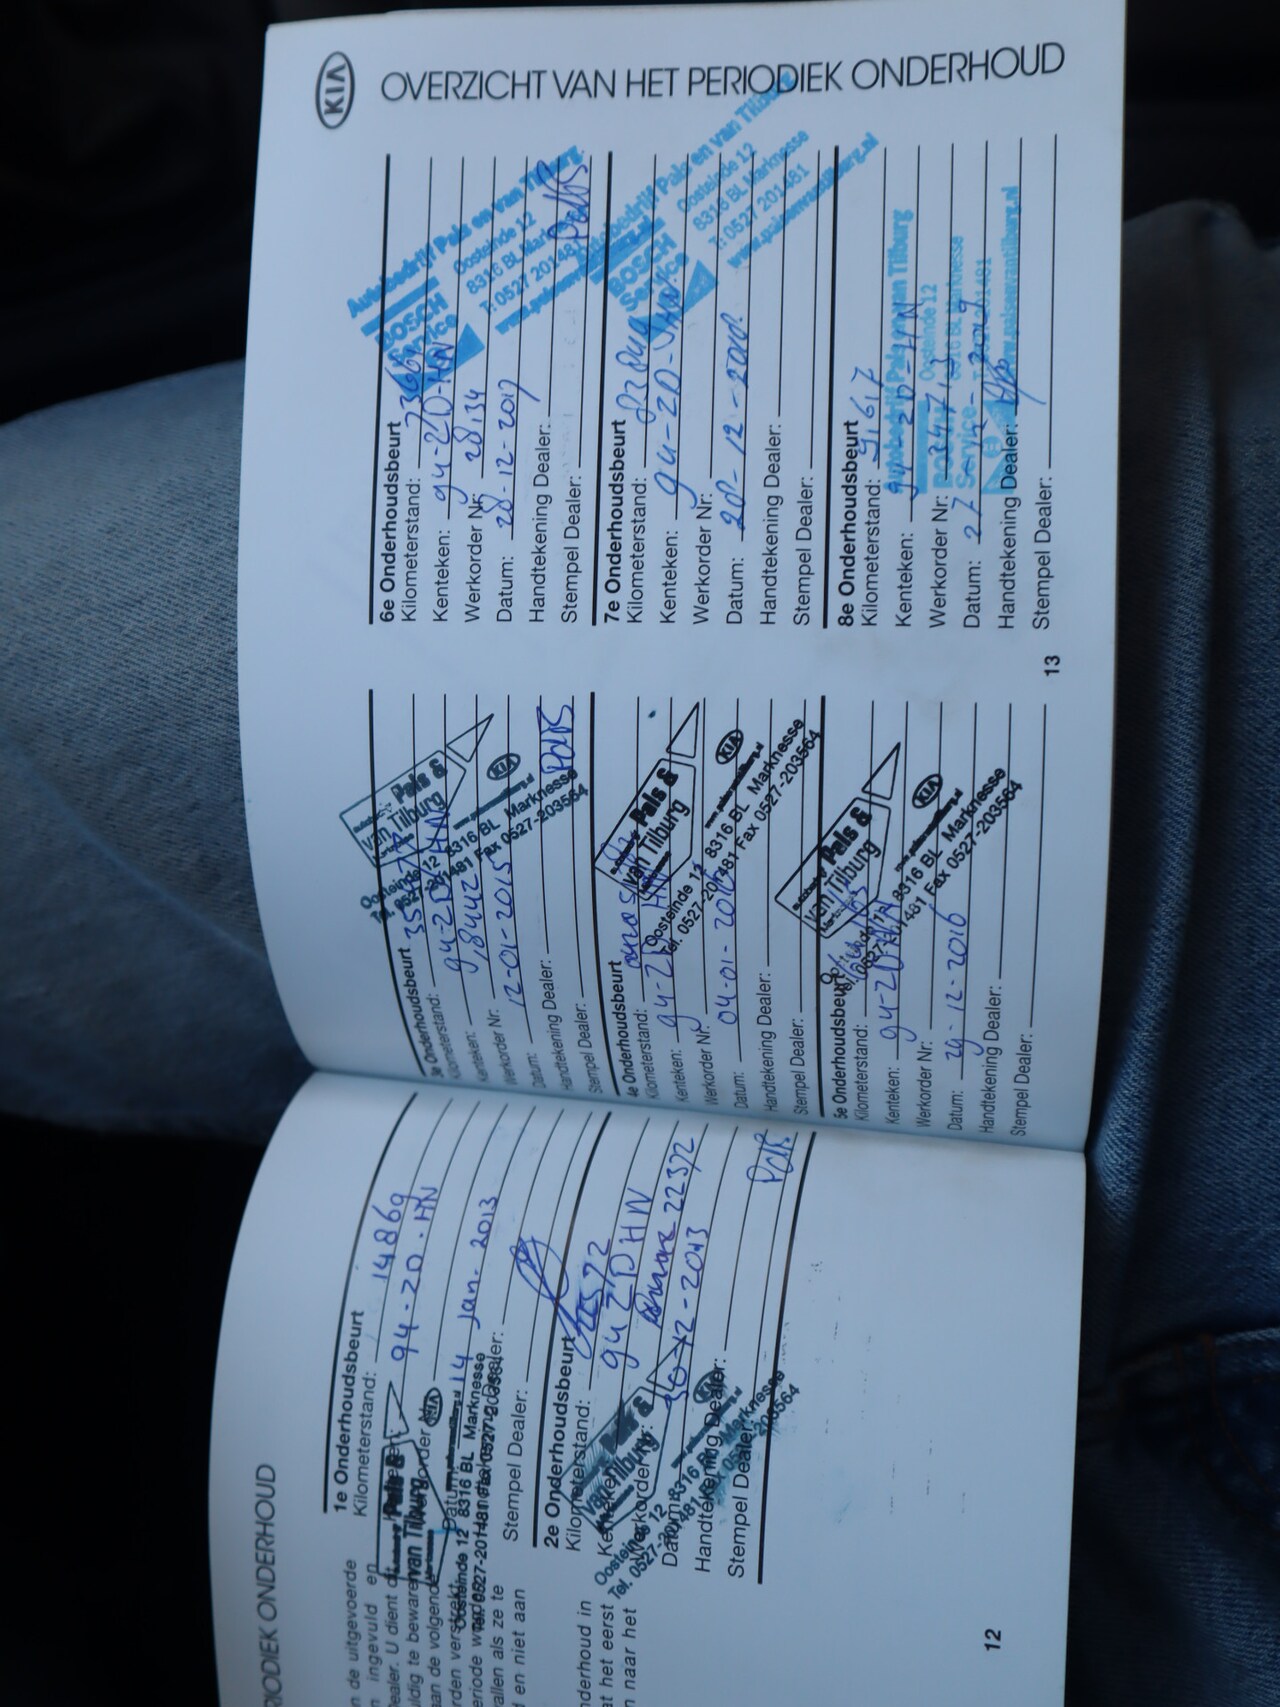 RIODIEK ONDERHOUD
n de uitgevoerde
n ingevuld en
dealer. U dient dit
uldig te bewaren
aan de volgende
rden verstrekt
eriode worden
vallen als ze te
d en niet aan
nderhoud in
at het eerst
n naar het
1e Onderhoudsbeurt
Kilometerstand: 14869
94-20-HN
Datum: 14 Jan- 2013
Stempel Dealer:
Pals &
van Tilburg
KIA
Oosteinde 12 8316 BL Marknesse
Tel. 0527-201481 Fax 0527-203564
2e Onderhoudsbeurt
Kilometerstand:
Kenteken:
Werkorder 22372
Datum: 30-12-2013
Handtekening Dealer:
Stempel Dealer: Pals
Pals &
van Tilburg
KIA
Oosteinde 12 8316 BL Marknesse
Tel. 0527-201481 Fax 0527-203564
12
3e Onderhoudsbeurt
Kilometerstand:
Kenteken: 94-ZD-HN
Werkorder Nr: 18442
Datum: 12-01-2015
Handtekening Dealer:
Stempel Dealer: Pals
Pals &
van Tilburg
KIA
Oosteinde 12 8316 BL Marknesse
Tel. 0527-201481 Fax 0527-203564
4e Onderhoudsbeurt
Kilometerstand:
Kenteken:
Werkorder Nr:
Datum: 04-01-2016
Handtekening Dealer:
Stempel Dealer:
Pals &
van Tilburg
KIA
Oosteinde 12 8316 BL Marknesse
Tel. 0527-201481 Fax 0527-203564
5e Onderhoudsbeurt
Kilometerstand:
Kenteken: 94-ZD-HN
Werkorder Nr:
Datum: 29-12-2016
Handtekening Dealer:
Stempel Dealer:
Pals &
van Tilburg
KIA
8316 BL Marknesse
Tel. 0527-201481 Fax 0527-203564
KIA
OVERZICHT VAN HET PERIODIEK ONDERHOUD
6e Onderhoudsbeurt
Kilometerstand:
Kenteken: 94-ZD-HN
Werkorder Nr: 28134
Datum: 28-12-2017
Handtekening Dealer:
Stempel Dealer: Pals
Autobedrijf Pals en van Tilburg
BOSCH
Service
Oosteinde 12
8316 BL Marknesse
T: 0527 201481
7e Onderhoudsbeurt
Kilometerstand:
Kenteken: 94-ZD-HN
Werkorder Nr:
Datum: 20-12-2018
Handtekening Dealer:
Stempel Dealer:
Autobedrijf Pals en van Tilburg
BOSCH
Service
Oosteinde 12
8316 BL Marknesse
T: 0527 201481
www.palsenvantilburg.nl
8e Onderhoudsbeurt
Kilometerstand:
Kenteken:
Werkorder Nr:
Datum: 27-12-2019
Handtekening Dealer:
Stempel Dealer:
Autobedrijf Pals en van Tilburg
Service
Oosteinde 12
8316 BL Marknesse
www.palsenvantilburg.nl
13